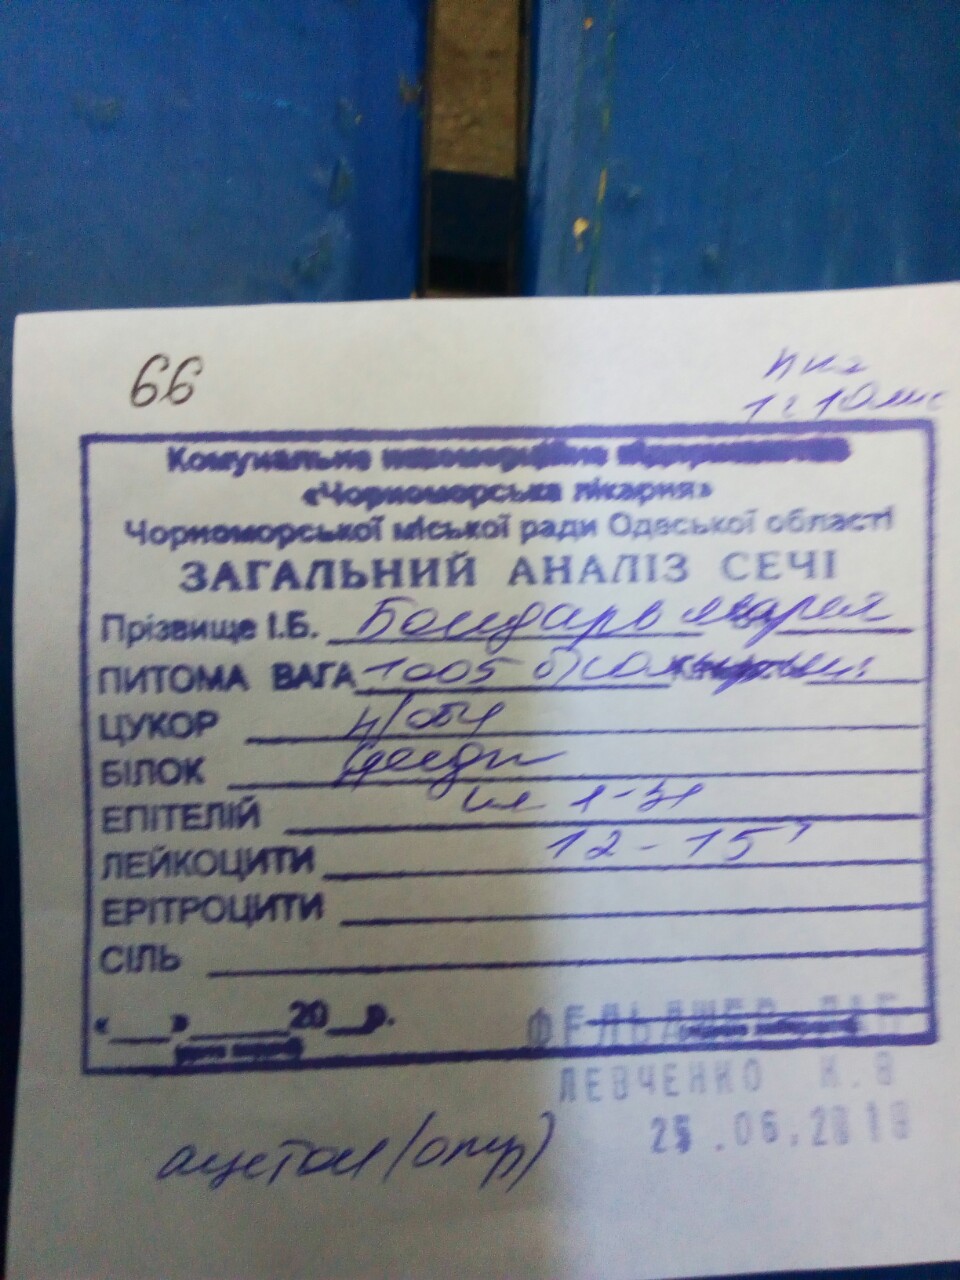 66
1 г 10 лис
Комунальне некомерційне підприємство
«Чорноморська лікарня»
Чорноморської міської ради Одеської області
ЗАГАЛЬНИЙ АНАЛІЗ СЕЧІ
Прізвище І.Б. Бондарь Мария
ПИТОМА ВАГА 1005
ЦУКОР н/обн
БІЛОК
ЕПІТЕЛІЙ
ЛЕЙКОЦИТИ 12-15
ЕРІТРОЦИТИ
СІЛЬ
« » 20 р.
ФЕЛЬДШЕР ЛАБ
ЛЕВЧЕНКО К.В
.06.2018
ацетон (отр)